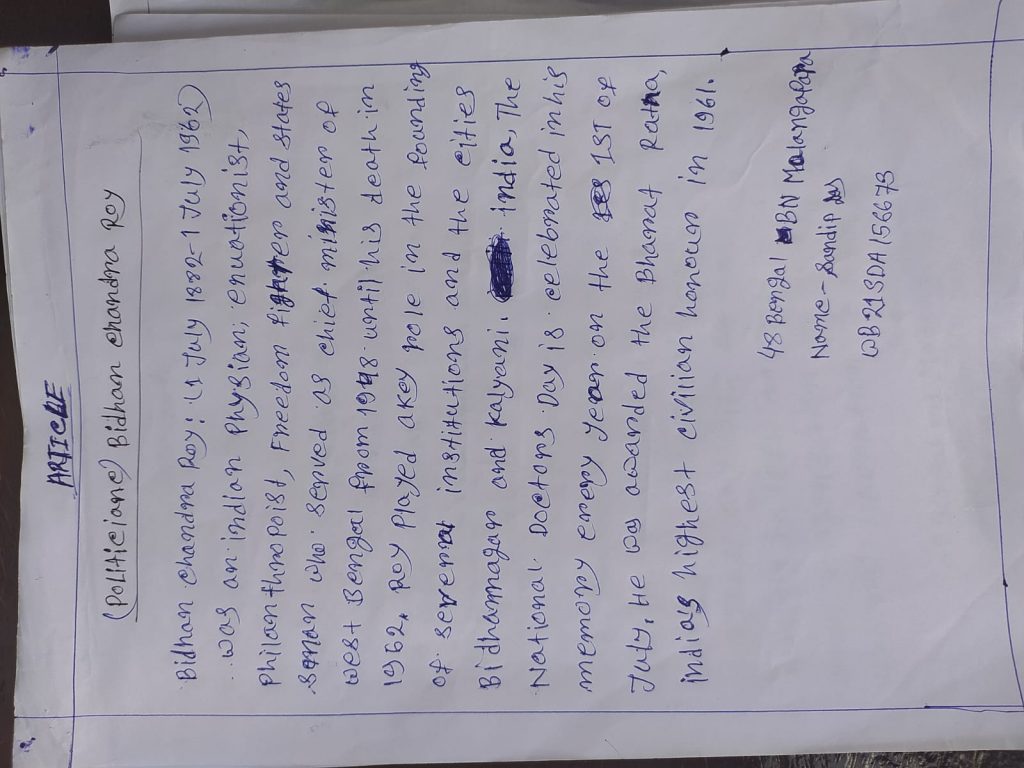 ARTICLE
(Politiciane) Bidhan chandra Roy
Bidhan chandra Roy: (1 July 1882-1 July 1962)
was an indian Physian, enuationist,
Philanthropoist, Freedom fighter and states
sman who served as chief. minister of
west Bengal from 1948 until his death in
1962. Roy Played akey role in the founding
of several institutions and the cities
Bidhannagar and kalyani. india, The
National Doctors Day is celebrated in his
memory every year on the 1ST OF
July. He was awarded the Bharat Ratna,
indias highest civilian honour in 1961.
48 Bengal BN Malangapara
Name - Sandip Das
WB21SDA156673